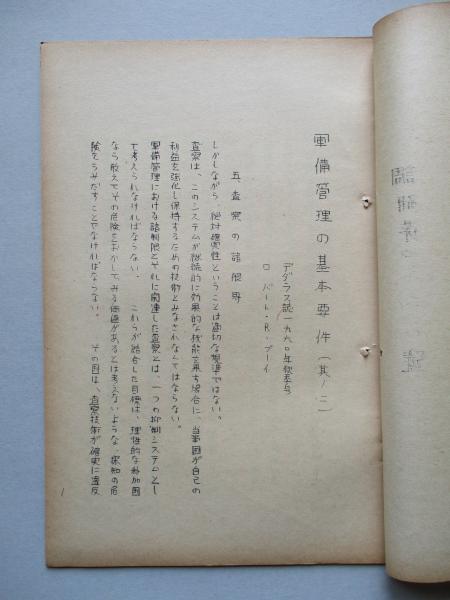 軍備管理の基本要件（其ノ二）
デダラス誌一九六〇年秋季号
ロバート・R・ブーイ
五、査察の諸限界
しかしながら、絶対確実性ということは適切な規準ではない。
査察は、このシステムが継続的に効果的な機能を果す場合に、当事国が自己の
利益を強化し保持するための技術とみなされなくてはならない。
軍備管理における諸制限とそれに関連した査察とは、一つの抑制システムとし
て考えられなければならない。　これらが結合した目標は、理性的な参加国
なら敢えてその危険をおかしてみる価値があるとは考えないような、察知の危
険をうみだすことでなければならない。　その図は、査察技術が確実に違反
1